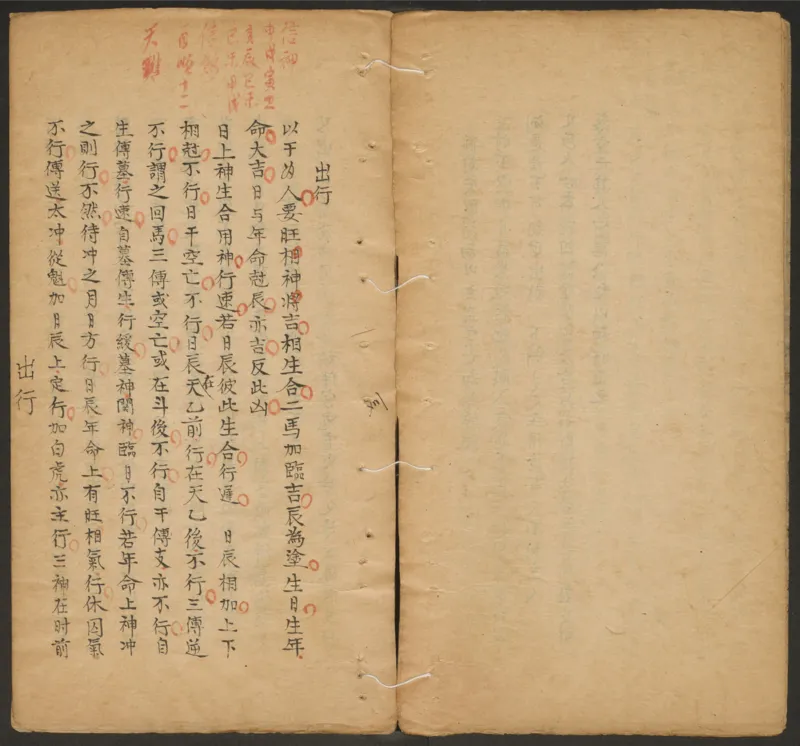 出行
以干为人要旺相神將吉相生合二馬加臨吉辰為塗生日生年
命大吉日与年命尅辰亦吉反此凶
日上神生合用神行速若日辰彼此生合行遲 日辰相加上下
相尅不行日干空亡不行日辰在天乙前行在天乙後不行三傳逆
不行謂之回馬三傳或空亡或在斗後不行自干傳支亦不行自
生傳墓行速自墓傳生行緩墓神関神臨日不行若年命上神冲
之則行不然待冲之月日方行日辰年命上有旺相氣行休囚氣
不行傳送太冲從魁加日辰上定行加白虎亦主行三神在时前
出行
信神
申戌寅丑
亥辰巳未
巳未申戌
天